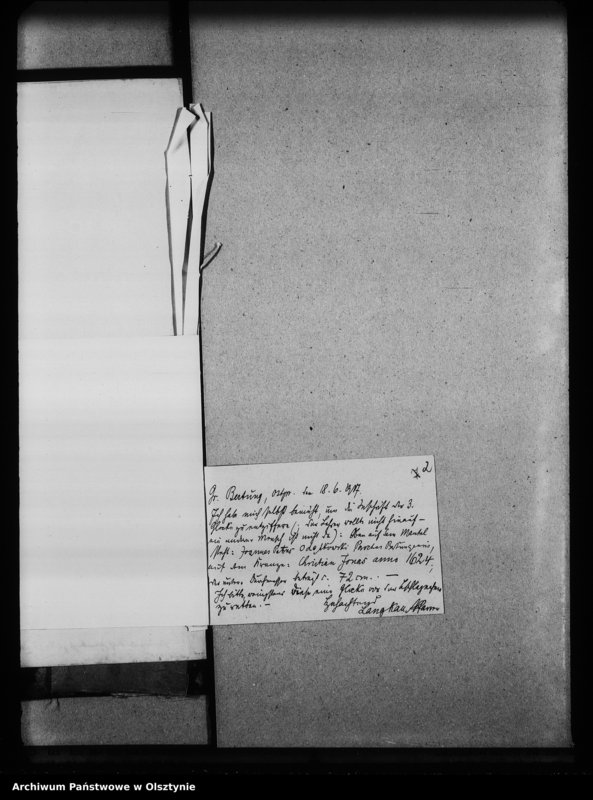 2
Gr. Bertung, Ostpr. den 18.6.1917.
Ich habe mich selbst bemüht, um die Inschrift der 3.
Glocke zu entziffern (: der Lehrer wollte nicht hinauf-
ein anderer Mensch ist nicht da): Oben auf dem Mantel
steht: Joannes Peter Parochus Bertungensis,
auf dem Kranze: Christian Jonas anno 1624;
der untere Durchmesser beträgt c. 72 cm. —
Ich bitte wenigstens diese eine Glocke vor dem
zu retten. —
Hochachtungsvoll
Langkau, Pfarrer
Archiwum Państwowe w Olsztynie